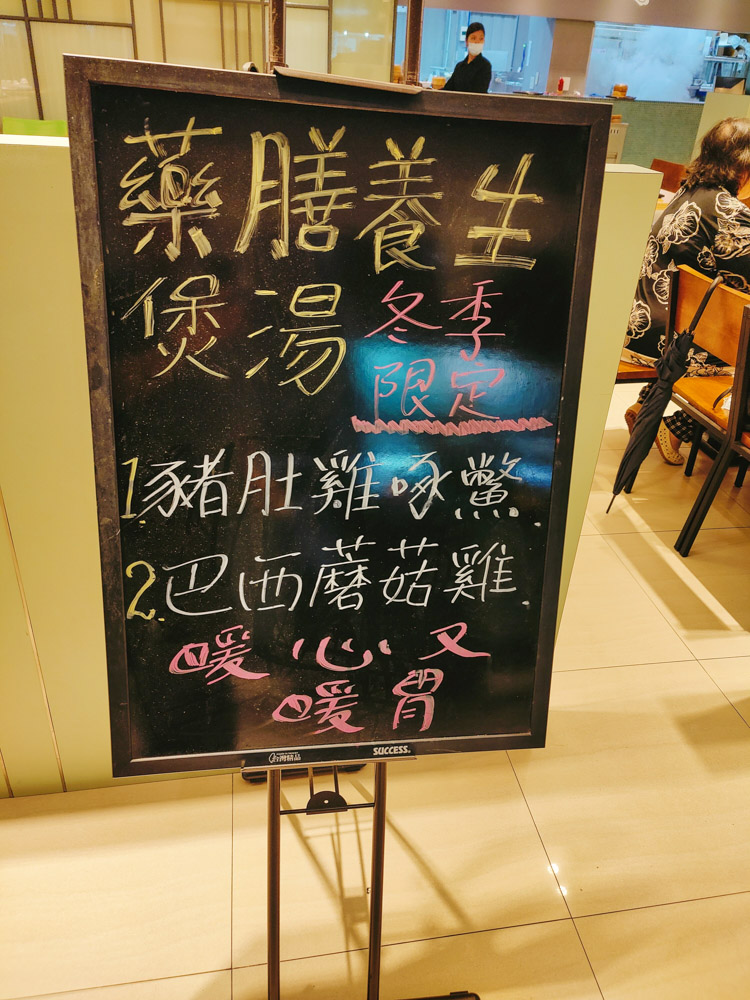 藥膳養生
煲湯 冬季
限定
1.豬肚雞啄鱉.
2.巴西蘑菇雞.
暖心又
暖胃
台灣精品 SUCCESS.